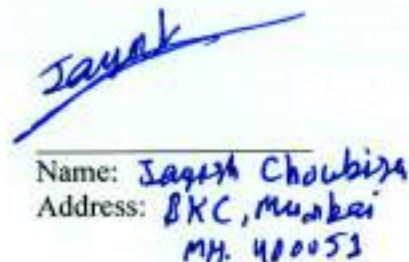 Jayesh
Name: Jayesh Choubisa
Address: BKC, Mumbai
MH. 400051